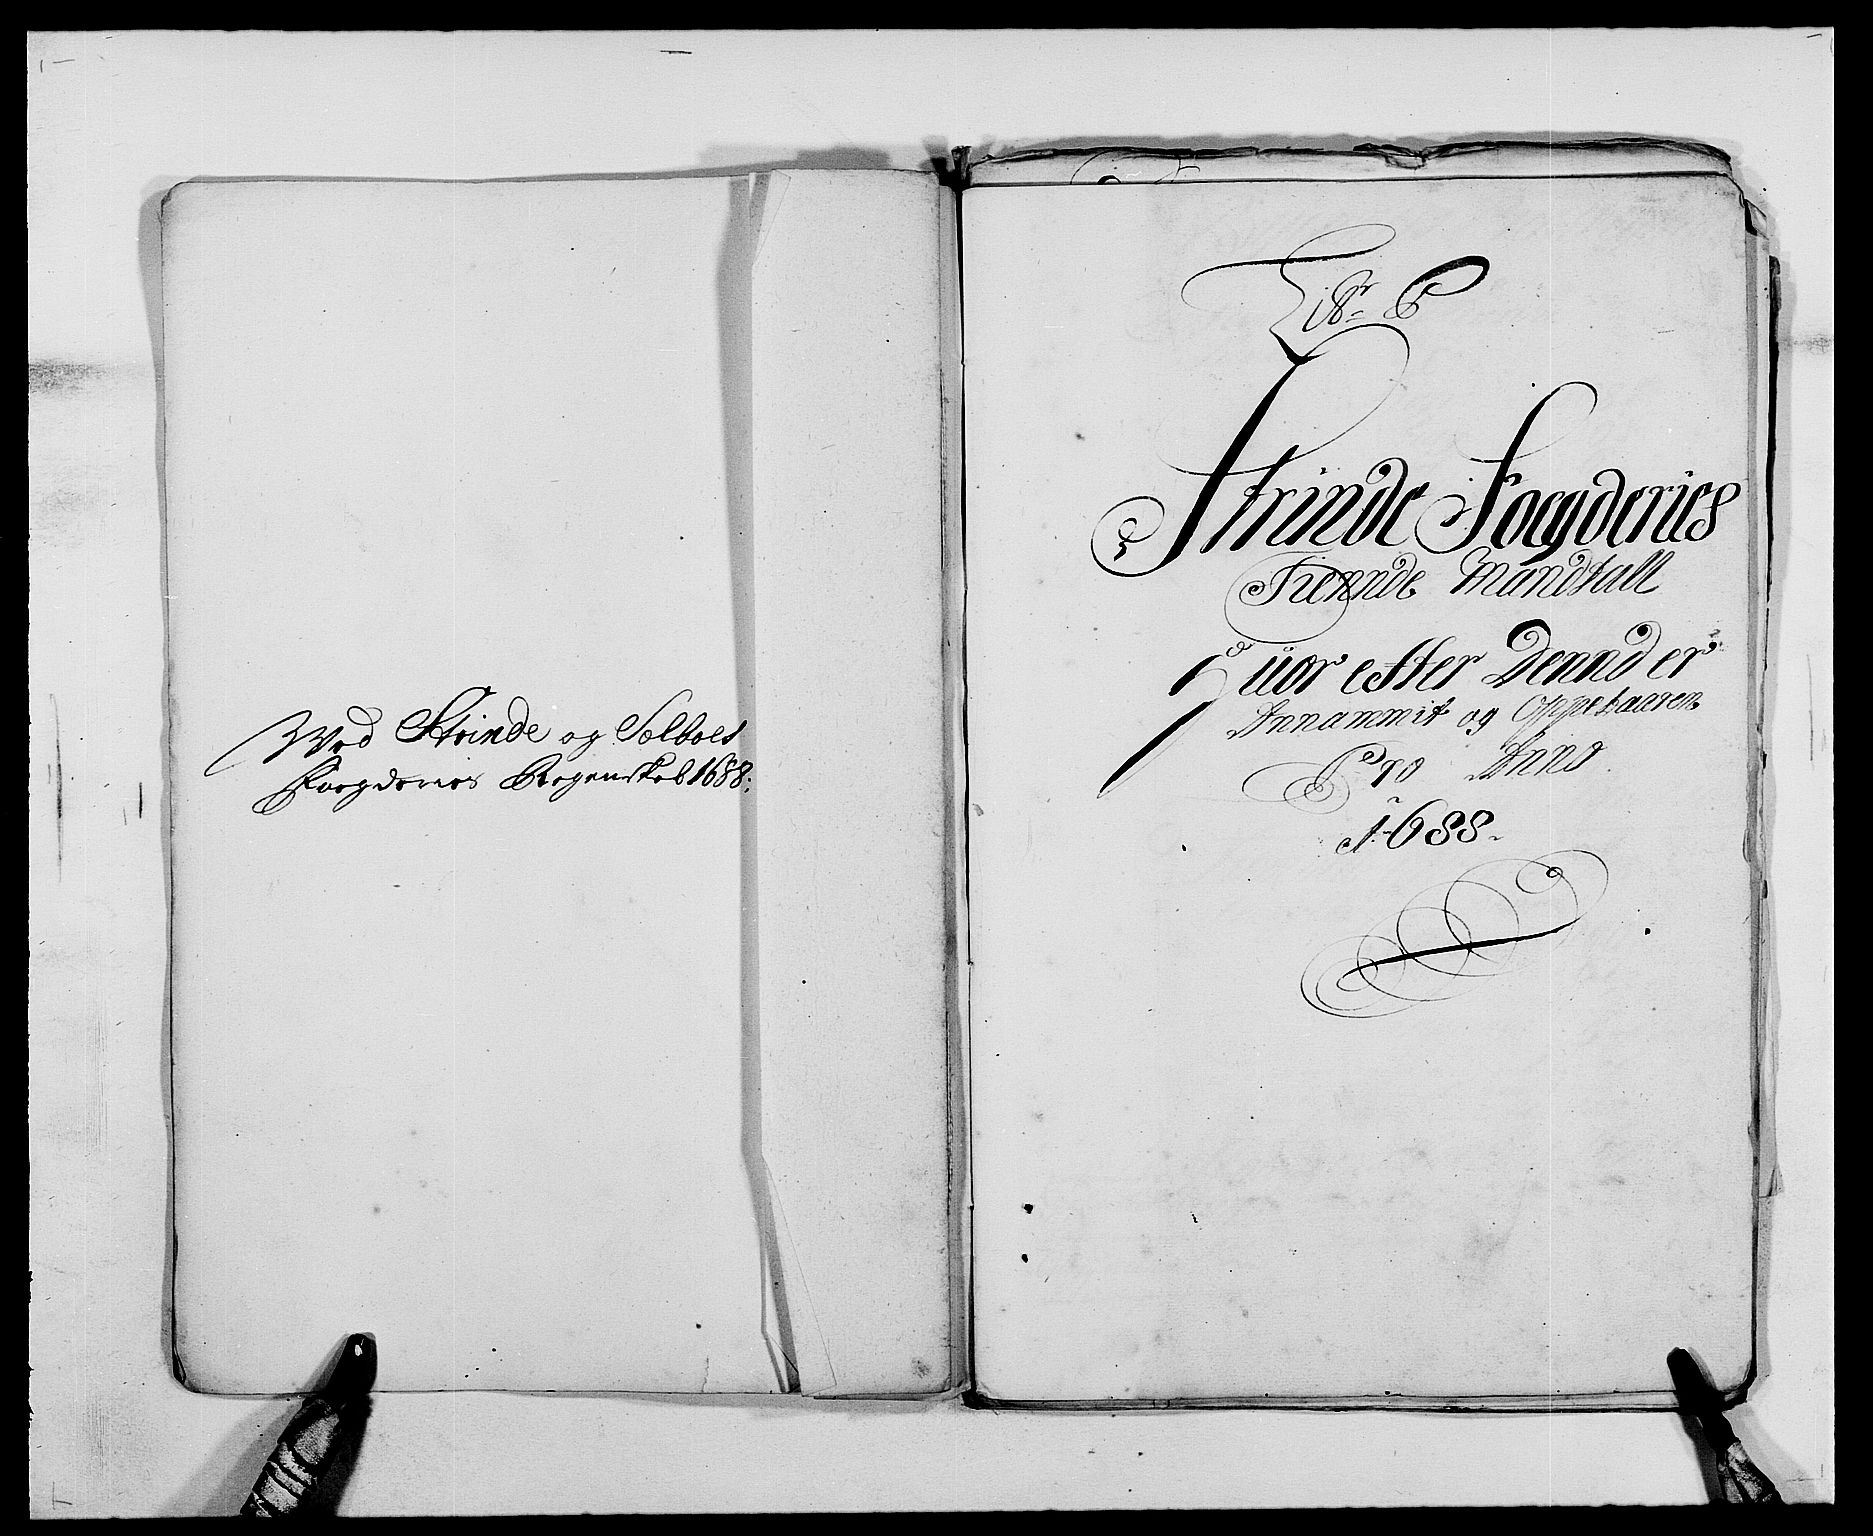 Wed Strinde og Selboes
Foegderies Regenskab 1688:
No. 6
Strinde Foegderies
Tiennde Mandtall
Huor efter Dennd er
Annammit og Oppebaaren
Pro Anno
1688